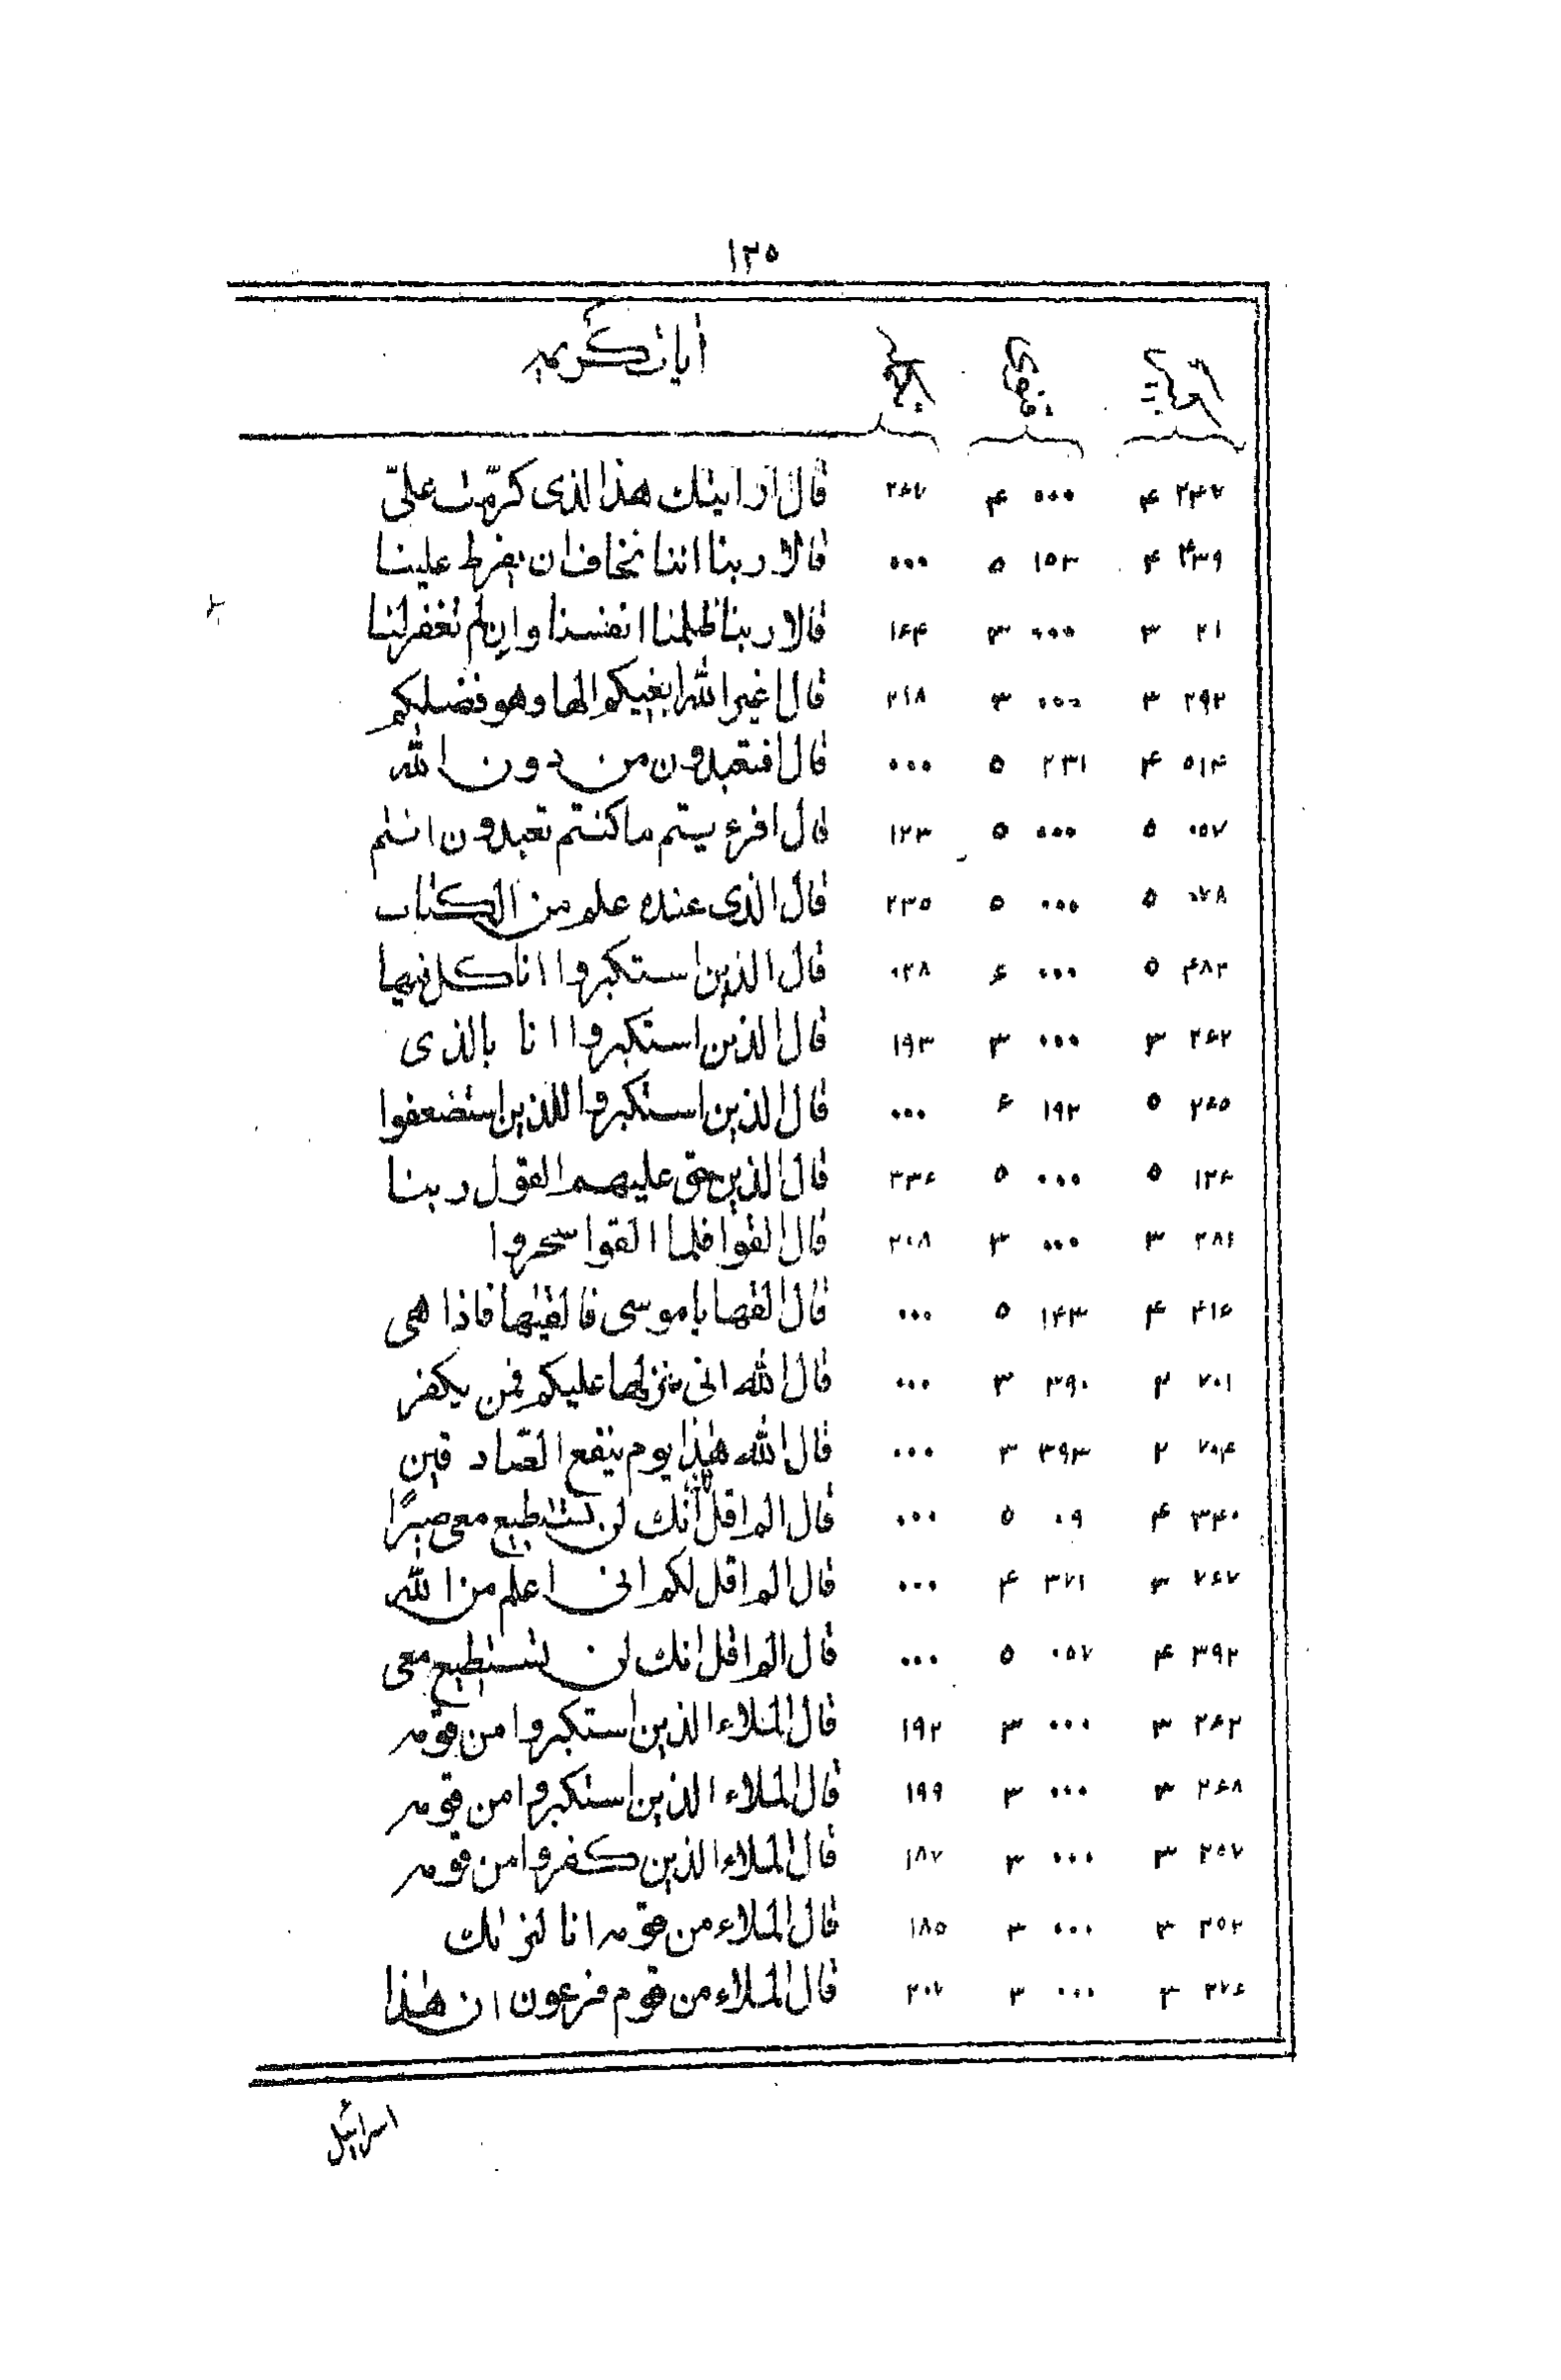 ١٢٥
آیات کریمه
۲۴۷ ۴ ۰۰۰ ۴ ۲۶۷ قال ارایتک هذا الذی کرّمت علیّ
۴۳۹ ۴ ۱۵۳ ۵ ۰۰۰ قالا ربنا اننا نخاف ان یفرط علینا
۲۱ ۳ ۰۰۰ ۳ ۱۶۴ قالا ربنا ظلمنا انفسنا وان لم تغفر لنا
۲۹۲ ۳ ۰۰۰ ۳ ۲۱۸ قال اغیر الله ابغیکم الها وهو فضلکم
۵۱۴ ۴ ۲۳۱ ۵ ۰۰۰ قال افتعبدون من دون الله
۰۵۷ ۵ ۰۰۰ ۵ ۱۲۳ قال افرءیتم ما کنتم تعبدون انتم
۰۷۸ ۵ ۰۰۰ ۵ ۲۳۵ قال الذی عنده علم من الکتاب
۴۸۲ ۵ ۰۰۰ ۶ ۰۲۸ قال الذین استکبروا انا کل فیها
۲۶۲ ۳ ۰۰۰ ۳ ۱۹۳ قال الذین استکبروا انا بالذی
۲۶۵ ۵ ۱۹۲ ۶ ۰۰۰ قال الذین استکبروا للذین استضعفوا
۱۲۶ ۵ ۰۰۰ ۵ ۲۳۶ قال الذین حق علیهم القول ربنا
۲۸۱ ۳ ۰۰۰ ۳ ۲۰۸ قال القوا فلما القوا سحروا
۴۱۶ ۴ ۱۴۳ ۵ ۰۰۰ قال القها یا موسی فالقیٰها فاذا هی
۷۰۱ ۲ ۳۹۰ ۳ ۰۰۰ قال الله انی منزلها علیکم فمن یکفر
۷۰۴ ۲ ۳۹۳ ۳ ۰۰۰ قال الله هٰذا یوم ینفع الصاد قین
۳۴۰ ۴ ۰۹ ۵ ۰۰۰ قال الم اقل انک لن تستطیع معی صبرًا
۷۶۷ ۳ ۳۷۱ ۴ ۰۰۰ قال الم اقل لکم انی اعلم من الله
۳۹۲ ۴ ۰۵۷ ۵ ۰۰۰ قال الم اقل انک لن تستطیع معی
۲۶۲ ۳ ۰۰۰ ۳ ۱۹۲ قال الملاء الذین استکبروا من قومه
۲۶۸ ۳ ۰۰۰ ۳ ۱۹۹ قال الملاء الذین استکبروا من قومه
۲۵۷ ۳ ۰۰۰ ۳ ۱۸۷ قال الملاء الذین کفروا من قومه
۲۵۲ ۳ ۰۰۰ ۳ ۱۸۵ قال الملاء من قومه انا لنرٰیک
۲۷۶ ۳ ۰۰۰ ۳ ۲۰۷ قال الملاء من قوم فرعون ان هٰذا
اسرائیل